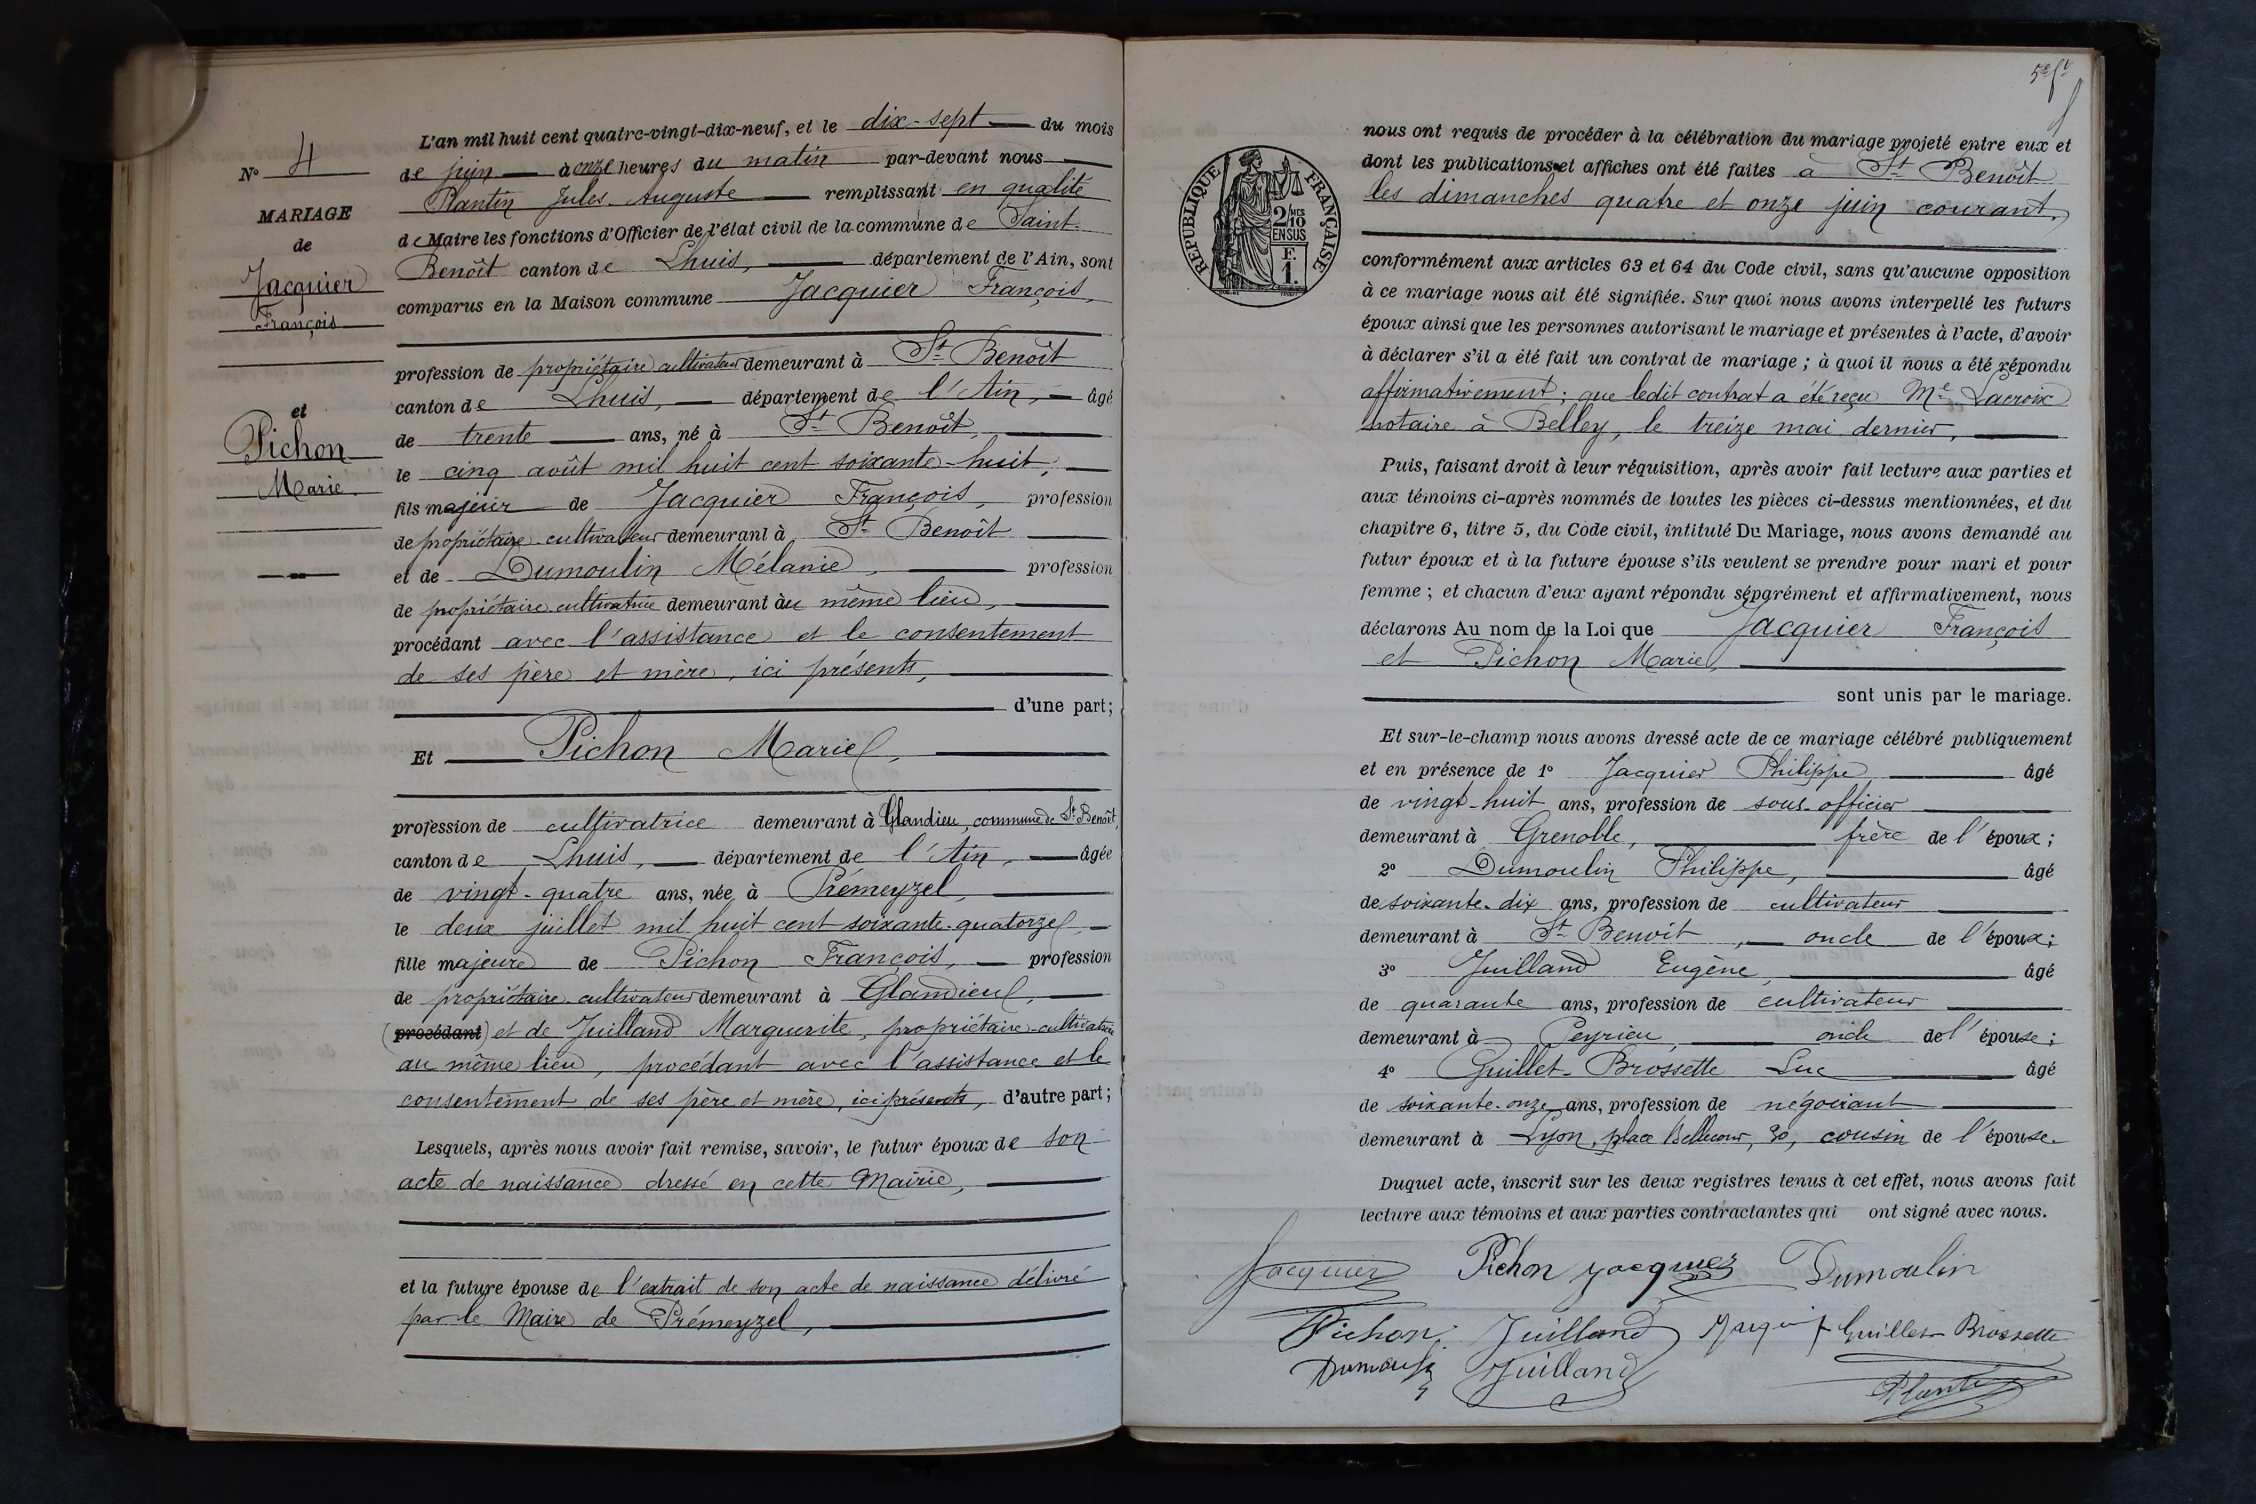 L'an mil huit cent quatre-vingt-dix-neuf, et le dix-sept du mois
de juin à onze heures du matin par-devant nous
Plantin Jules Auguste remplissant en qualité
de Maire les fonctions d'Officier de l'état civil de la commune de Saint-
Benoît canton de Lhuis, département de l'Ain, sont
comparus en la Maison commune Jacquier François,
profession de propriétaire cultivateur demeurant à St Benoît
canton de Lhuis, département de l'Ain, âgé
de trente ans, né à St Benoît,
le cinq août mil huit cent soixante-huit,
fils majeur de Jacquier François, profession
de propriétaire-cultivateur demeurant à St Benoît
et de Dumoulin Mélanie, profession
de propriétaire-cultivatrice demeurant au même lieu,
procédant avec l'assistance et le consentement
de ses père et mère, ici présents,
d'une part;
Et Pichon Marie,
profession de cultivatrice demeurant à Glandieu, commune de St Benoît,
canton de Lhuis, département de l'Ain, âgée
de vingt-quatre ans, née à Prémeyzel,
le deux juillet mil huit cent soixante-quatorze
fille majeure de Pichon François, profession
de propriétaire-cultivateur demeurant à Glandieu,
(procédant) et de Juilland Marguerite, propriétaire-cultivatrice
au même lieu, procédant avec l'assistance et le
consentement de ses père et mère, ici présents, d'autre part;
Lesquels, après nous avoir fait remise, savoir, le futur époux de son
acte de naissance dressé en cette Mairie,
et la future épouse de l'extrait de son acte de naissance délivré
par le Maire de Prémeyzel,
N° 4
MARIAGE
de
Jacquier
François
et
Pichon
Marie
RÉPUBLIQUE FRANÇAISE
2/10 MES
EN SUS
F.
1.
nous ont requis de procéder à la célébration du mariage projeté entre eux et
dont les publications et affiches ont été faites à St Benoît
les dimanches quatre et onze juin courant,
conformément aux articles 63 et 64 du Code civil, sans qu'aucune opposition
à ce mariage nous ait été signifiée. Sur quoi nous avons interpellé les futurs
époux ainsi que les personnes autorisant le mariage et présentes à l'acte, d'avoir
à déclarer s'il a été fait un contrat de mariage ; à quoi il nous a été répondu
affirmativement ; que ledit contrat a été reçu Me Lacroix
notaire à Belley, le treize mai dernier,
Puis, faisant droit à leur réquisition, après avoir fait lecture aux parties et
aux témoins ci-après nommés de toutes les pièces ci-dessus mentionnées, et du
chapitre 6, titre 5, du Code civil, intitulé Du Mariage, nous avons demandé au
futur époux et à la future épouse s'ils veulent se prendre pour mari et pour
femme ; et chacun d'eux ayant répondu séparément et affirmativement, nous
déclarons Au nom de la Loi que Jacquier François
et Pichon Marie,
sont unis par le mariage.
Et sur-le-champ nous avons dressé acte de ce mariage célébré publiquement
et en présence de 1° Jacquier Philippe âgé
de vingt-huit ans, profession de sous-officier
demeurant à Grenoble, frère de l'époux;
2° Dumoulin Philippe, âgé
de soixante-dix ans, profession de cultivateur
demeurant à St Benoît, oncle de l'époux;
3° Juilland Eugène, âgé
de quarante ans, profession de cultivateur
demeurant à Peyrieu, oncle de l'épouse;
4° Guillet-Brossette Luc âgé
de soixante-onze ans, profession de négociant
demeurant à Lyon, place Bellecour, 30, cousin de l'épouse.
Duquel acte, inscrit sur les deux registres tenus à cet effet, nous avons fait
lecture aux témoins et aux parties contractantes qui ont signé avec nous.
Jacquier Pichon Jacquier Dumoulin
Pichon Juilland Guillet-Brossette
Dumoulin Juilland Plantin